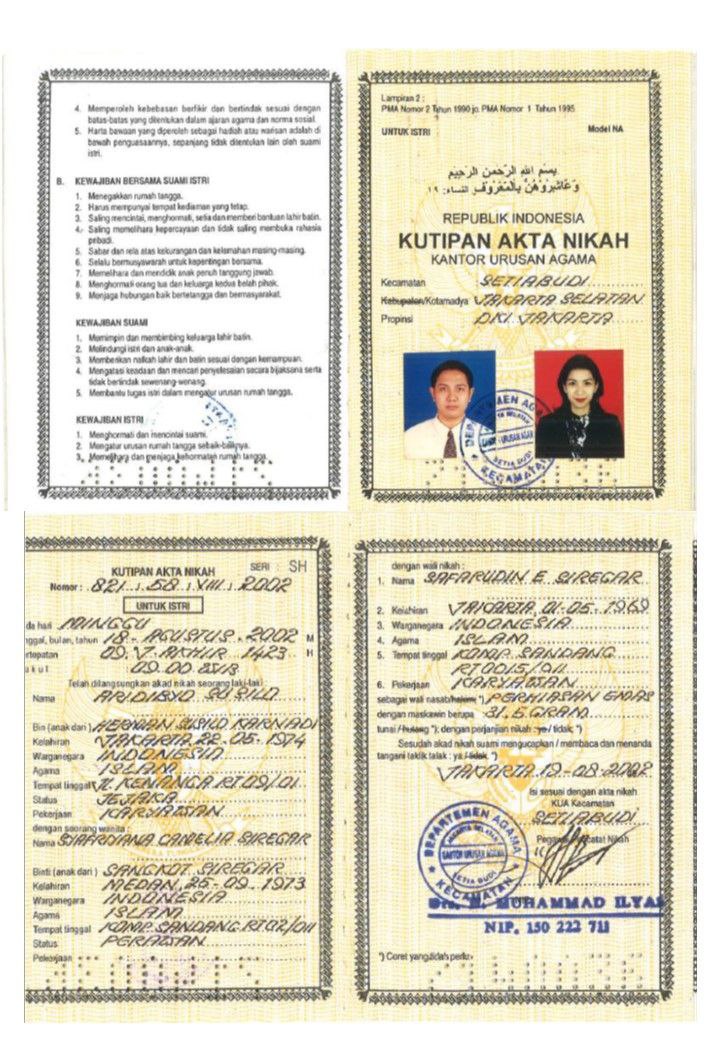 4. Memperoleh kebebasan berfikir dan bertindak sesuai dengan
batas-batas yang ditentukan dalam ajaran agama dan norma sosial.
5. Harta bawaan yang diperoleh sebagai hadiah atau warisan adalah di
bawah penguasaannya, sepanjang tidak ditentukan lain oleh suami
istri.
B. KEWAJIBAN BERSAMA SUAMI ISTRI
1. Menegakkan rumah tangga.
2. Harus mempunyai tempat kediaman yang tetap.
3. Saling mencintai, menghormati, setia dan memberi bantuan lahir batin.
4. Saling memelihara kepercayaan dan tidak saling membuka rahasia
pribadi.
5. Sabar dan rela atas kekurangan dan kelemahan masing-masing.
6. Selalu bermusyawarah untuk kepentingan bersama.
7. Memelihara dan mendidik anak penuh tanggung jawab.
8. Menghormati orang tua dan keluarga kedua belah pihak.
9. Menjaga hubungan baik bertetangga dan bermasyarakat.
KEWAJIBAN SUAMI
1. Memimpin dan membimbing keluarga lahir batin.
2. Melindungi istri dan anak-anak.
3. Memberikan nafkah lahir dan batin sesuai dengan kemampuan.
4. Mengatasi keadaan dan mencari penyelesaian secara bijaksana serta
tidak bertindak sewenang-wenang.
5. Membantu tugas istri dalam mengatur urusan rumah tangga.
KEWAJIBAN ISTRI
1. Menghormati dan mencintai suami.
2. Mengatur urusan rumah tangga sebaik-baiknya.
3. Memelihara dan menjaga kehormatan rumah tangga.
Lampiran 2 :
PMA Nomor 2 Tahun 1990 jo. PMA Nomor 1 Tahun 1995
UNTUK ISTRI Model NA
بسم الله الرحمن الرحيم
وعاشروهن بالمعروف النساء: ١٩
REPUBLIK INDONESIA
KUTIPAN AKTA NIKAH
KANTOR URUSAN AGAMA
Kecamatan SETIABUDI
Kabupaten/Kotamadya JAKARTA SELATAN
Propinsi DKI JAKARTA
DEPARTEMEN AGAMA
KANTOR URUSAN AGAMA
SETIA BUDI
KECAMATAN
KUTIPAN AKTA NIKAH SERI SH
Nomor : 821 : 58 : VIII : 2002
UNTUK ISTRI
da hari MINGGU
nggal, bulan, tahun 18 - AGUSTUS - 2002 M
rtepatan 09. J. AKHIR 1423 H
ukul 09.00
Telah dilangsungkan akad nikah seorang laki-laki
Nama ARIDIBYO SUSILO
Bin (anak dari ) HERMAN SUSILO KARNADI
Kelahiran JAKARTA 22-05-1974
Warganegara INDONESIA
Agama ISLAM
Tempat tinggal JL. KENANGA RT 09/01
Status JEJAKA
Pekerjaan KARYAWAN
dengan seorang wanita :
Nama SJAFRDIANA CAMELIA SIREGAR
Binti (anak dari ) SANGKOT SIREGAR
Kelahiran MEDAN, 25-09-1973
Warganegara INDONESIA
Agama ISLAM
Tempat tinggal KOMP SANDANG RT 02/011
Status PERAWAN
Pekerjaan
dengan wali nikah :
1. Nama SAFARUDIN E SIREGAR
2. Kelahiran JAKARTA 01-05-1969
3. Warganegara INDONESIA
4. Agama ISLAM
5. Tempat tinggal KOMP SANDANG
RT 0015/011
6. Pekerjaan KARYAWAN
sebagai wali nasab/hakim; *) PERHIASAN EMAS
dengan maskawin berupa 31,5 GRAM
tunai / hutang *); dengan perjanjian nikah : ya / tidak; *)
Sesudah akad nikah suami mengucapkan / membaca dan menanda
tangani taklik talak : ya / tidak. *)
JAKARTA 19-08-2002
Isi sesuai dengan akta nikah
KUA Kecamatan
SETIABUDI
Pegawai Pencatat Nikah
DEPARTEMEN AGAMA
JAKARTA SELATAN
KANTOR URUSAN AGAMA
SETIA BUDI
KECAMATAN
Drs. H. MUHAMMAD ILYAS
NIP. 150 222 711
*) Coret yang tidak perlu